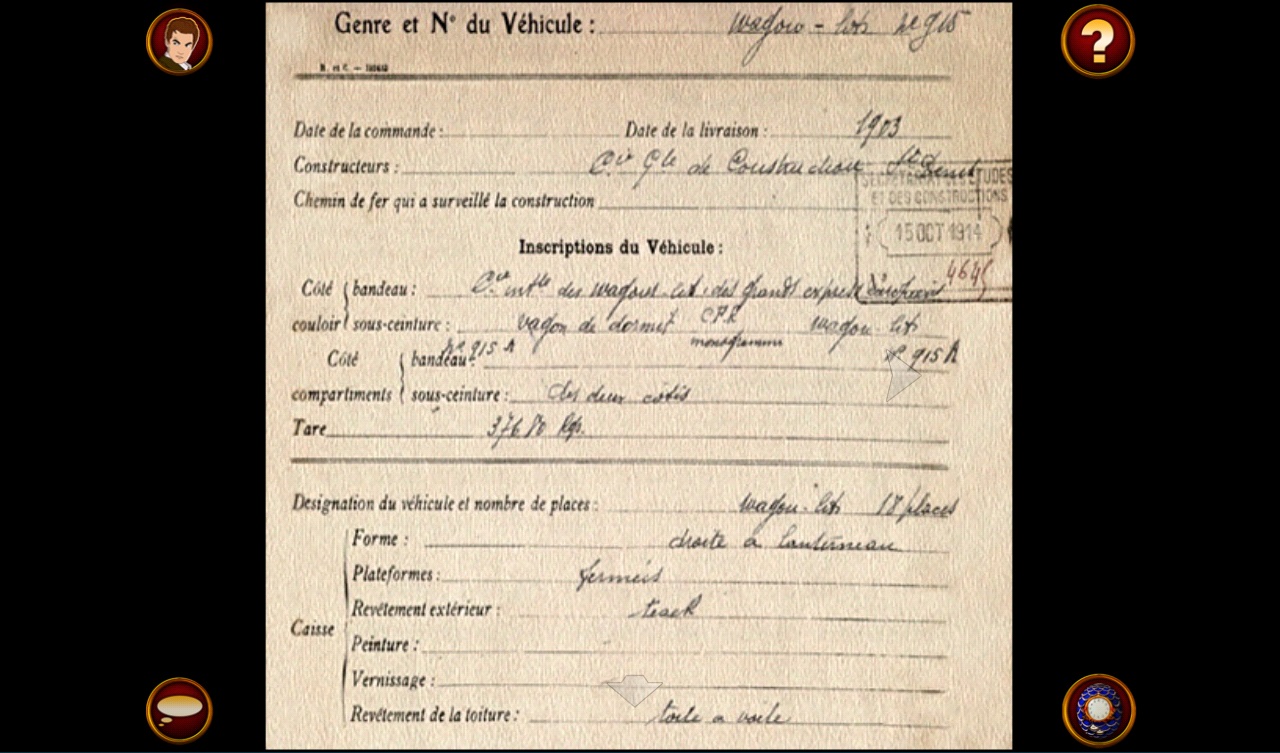 Genre et N° du Véhicule : Wagon-lits N° 915
Date de la commande : Date de la livraison : 1903
Constructeurs : Cie Gle de Construction St Denis
SECRETARIAT DES ETUDES
ET DES CONSTRUCTIONS
Chemin de fer qui a surveillé la construction
15 OCT 1914
Inscriptions du Véhicule :
4645
Côté couloir bandeau : Cie intle des wagons-lits des grands express Européens
sous-ceinture : Vagon de dormit C.F.R monogramme wagon-lits
Côté compartiments bandeau : N° 915 A N° 915 A
sous-ceinture : des deux côtés
Tare 37680 Kgs.
Designation du véhicule et nombre de places : wagon-lits 18 places
Caisse
Forme : droite à lanterneau
Plateformes : fermées
Revêtement extérieur : teack
Peinture :
Vernissage :
Revêtement de la toiture : toile a voile